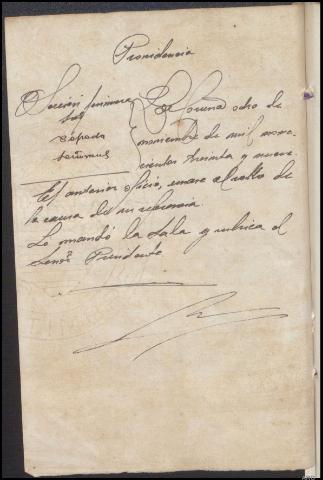 Providencia
Sección primera
Sres
Cepeda
{La Coruña ocho de
noviembre de mil nove-
cientos treinta y nueve.
El anterior oficio, únase al rollo de
la causa de su referencia.
Lo mandó la Sala y rubrica el
Señor Presidente